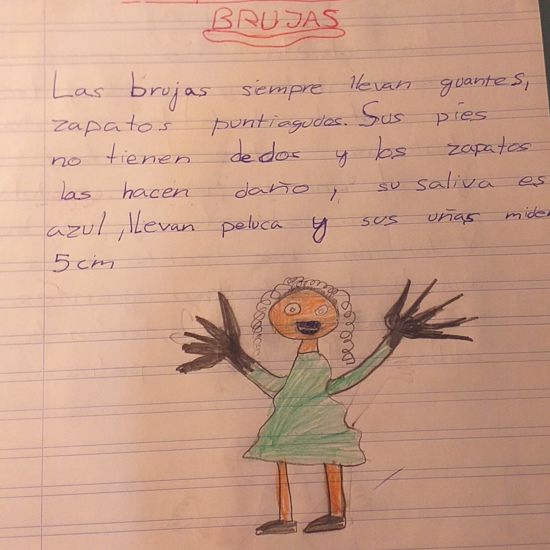 BRUJAS
Las brujas siempre llevan guantes,
zapatos puntiagudos. Sus pies
no tienen dedos y los zapatos
las hacen daño, su saliva es
azul, llevan peluca y sus uñas miden
5 cm